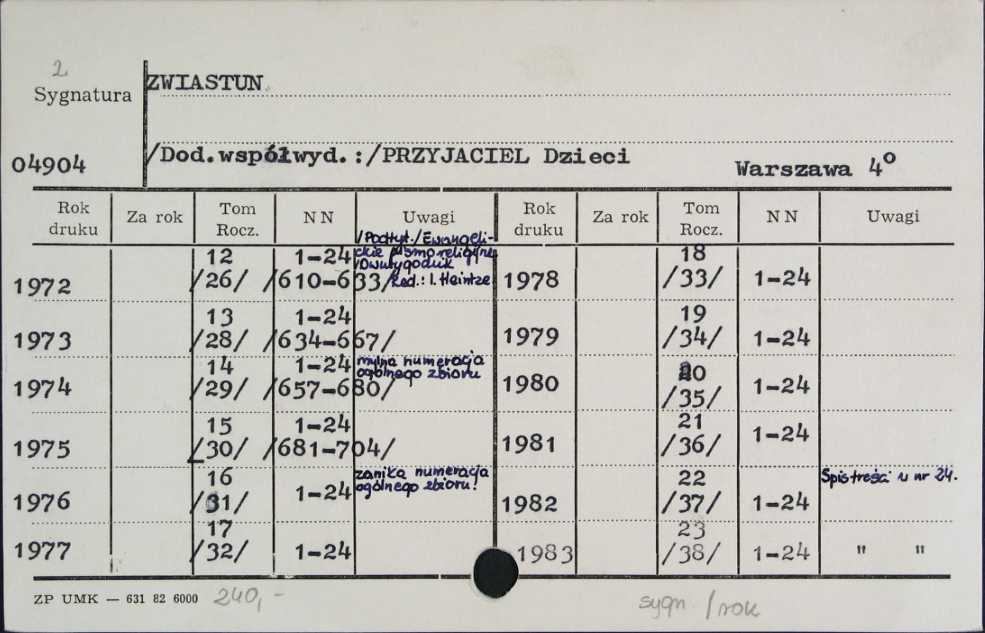 2
Sygnatura
ZWIASTUN
04904
/Dod.współwyd.:/PRZYJACIEL Dzieci
Warszawa 4º
Rok druku Za rok Tom Rocz. NN Uwagi Rok druku Za rok Tom Rocz. NN Uwagi
1972 12 /26/ 1-24 /610-633/ /Podtyt./Ewangeli-
ckie pismo religijne
/Dwutygodnik
Red.: I. Heintze
1978 18 /33/ 1-24
1973 13 /28/ 1-24 /634-667/
1979 19 /34/ 1-24
1974 14 /29/ 1-24 /657-680/ mylna numeracja
ogólnego zbioru
1980 20 /35/ 1-24
1975 15 /30/ 1-24 /681-704/
1981 21 /36/ 1-24
1976 16 /31/ 1-24 zanika numeracja
ogólnego zbioru!
1982 22 /37/ 1-24 Spis treści w nr 24.
1977 17 /32/ 1-24
1983 23 /38/ 1-24 " "
ZP UMK — 631 82 6000 240,-
sygn. /rok